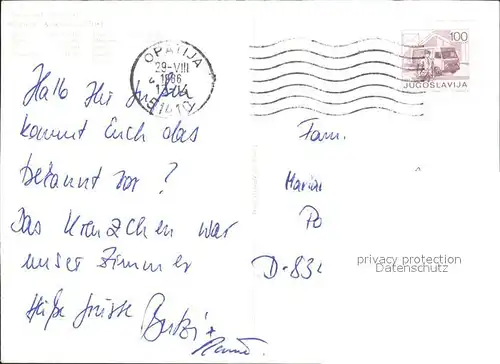 OPATIJA
29-VIII
1986
51410
100
JUGOSLAVIJA
Hallo Ihr
kommt Euch das
bekannt vor?
Das Kreuzchen war
unser Zimmer
Fam.
D-83
privacy protection
Datenschutz